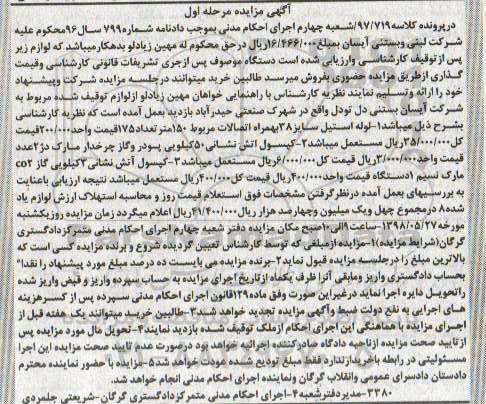 آگهی مزایده مرحله اول
درپرونده کلاسه ۹۷/۷۱۹/شعبه چهارم اجرای احکام مدنی بموجب دادنامه شماره ۷۹۹ سال ۹۶ محکوم علیه
شرکت لبنی وبستنی آیسان بمبلغ ۱۶/۴۶۶/۰۰۰ ریال درحق محکوم له مهین زیادلو بدهکارمیباشد که لوازم زیر
پس ازتوقیف کارشناسی وارزیابی شده است دستگاه موصوف پس ازجری تشریفات قانونی کارشناسی وقیمت
گذاری ازطریق مزایده حضوری بفروش میرسد طالبین خرید میتوانند درجلسه مزایده شرکت وپیشنهاد
خود را ارائه وتسلیم نمایند نظریه کارشناس با راهنمایی خواهان مهین زیادلو ازلوازم توقیف شده مربوط به
شرکت آیسان بستنی دل تودل واقع در شهرک صنعتی حیدرآباد بازدید بعمل آمده است که نظریه کارشناسی
بشرح ذیل میباشد۱-لوله استیل سایز۳۸بهمراه اتصالات مربوط ۱۵۰متر تعداد۱۷۵قیمت واحد۲۰۰/۰۰۰قیمت
کل۳۵/۰۰۰/۰۰۰ریال مستعمل میباشد۲-کپسول اتش نشانی ۵۰کیلیویی پودر وگاز چرخدار مارک دژ۲عدد
قیمت واحد۳/۰۰۰/۰۰۰ریال قیمت کل۶/۰۰۰/۰۰۰ریال مستعمل میباشد۳-کپسول آتش نشانی ۳کیلویی گاز co۲
مارک نسیم ۱دستگاه قیمت واحد۴۰۰/۰۰۰ریال قیمت کل۴۰۰/۰۰۰ریال مستعمل میباشد نتیجه ارزیابی باعنایت
به بررسیهای بعمل آمده درنظرگرفتن مشخصات فوق استعلام قیمت روز و محاسبه استهلاک ارزش لوازم یاد
شده درمجموع چهل ویک میلیون وچهارصد هزار ریال۴۱/۴۰۰/۰۰۰ریال اعلام میگردد زمان مزایده روزیکشنبه
مورخه۱۳۹۸/۰۵/۲۷-ساعت۹الی۱۰صبح مکان مزایده دفتر شعبه چهارم اجرای احکام مدنی متمرکزدادگستری
گرگان(شرایط مزایده)۱-مزایده ازمبلغی که توسط کارشناس تعیین گردیده شروع و برنده مزایده کسی است که
بالاترین مبلغ را درجلسه مزایده قبول نماید۲-برنده مزایده می بایست ده درصد مبلغ مورد پیشنهاد را نقدا"
بحساب دادگستری واریز ومابقی آنرا ظرف یکماه ازتاریخ اجرای مزایده به حساب سپرده واریز و قبض واریز شده
راتحویل دایره اجرا نماید درغیراین صورت وفق ماده۱۲۹قانون اجرای احکام مدنی سپرده پس از کسرهزینه
های اجرایی به نفع دولت ضبط وآگهی مزایده تجدید خواهد شد۳-طالبین خرید میتوانند یک هفته قبل از
اجرای مزایده با هماهنگی این اجرای احکام ازملک توقیف شده بازدید نمایند۴-تحویل مال مورد مزایده پس
از تایید صحت مزایده ازناحیه دادگاه صادرکننده اجرائیه خواهد بود درصورت عدم تایید صحت مزایده این اجرا
مسئولیتی در رابطه باخریدارندارد فقط مبلغ تودیع شده عودت خواهد شد۵-مزایده با حضور نماینده محترم
دادستان دادسرای عمومی وانقلاب گرگان ونماینده اجرای احکام مدنی انجام خواهد شد.
۳۳۸۰-مدیردفترشعبه۴-اجرای احکام مدنی متمرکزدادگستری گرگان-شریعتی جلمردی